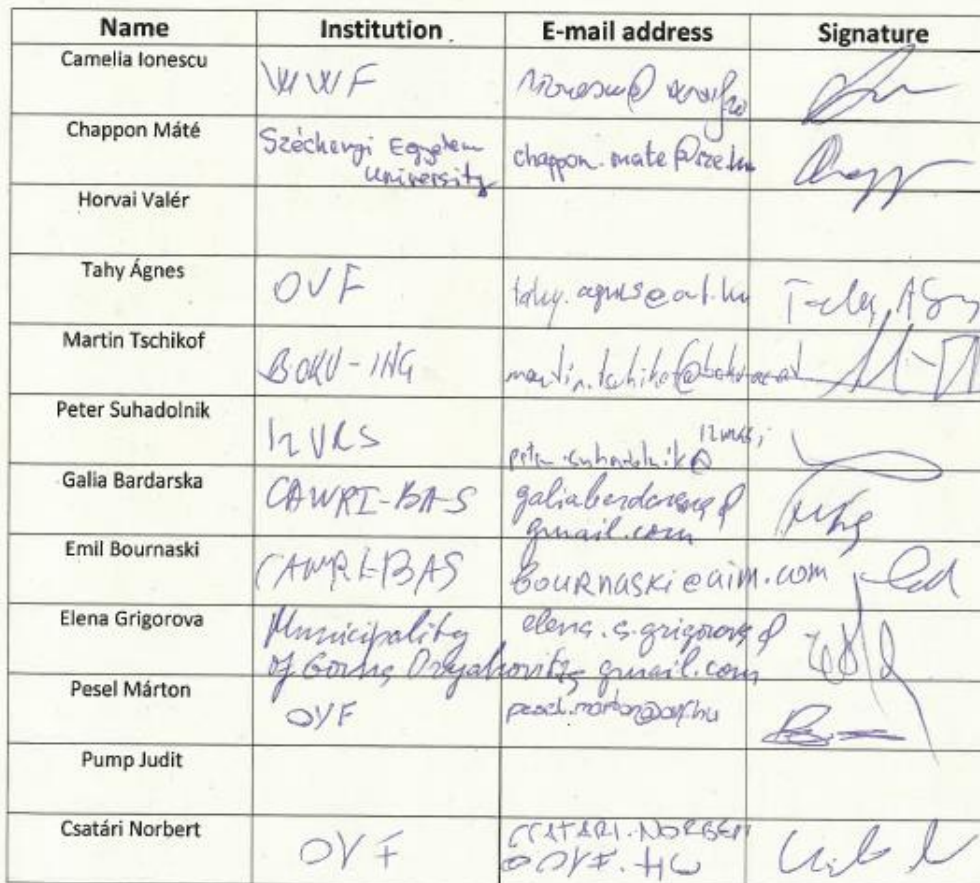 Name Institution E-mail address Signature
Camelia Ionescu WWF
Chappon Máté Széchenyi Egyetem
University chappon.mate@sze.hu
Horvai Valér
Tahy Ágnes OVF tahy.agnes@ovf.hu Tahy Ágn
Martin Tschikof BOKU-ING
Peter Suhadolnik IZVRS peter.suhadolnik@
izvrs.si
Galia Bardarska CAWRI-BAS galiabardarska@
gmail.com
Emil Bournaski CAWRI-BAS bournaski@aim.com
Elena Grigorova Municipality elena.s.grigorova@
of Gorna Oryahovitza gmail.com
Pesel Márton OVF pesel.marton@ovf.hu
Pump Judit
Csatári Norbert OVF CSATARI.NORBERT
@OVF.HU